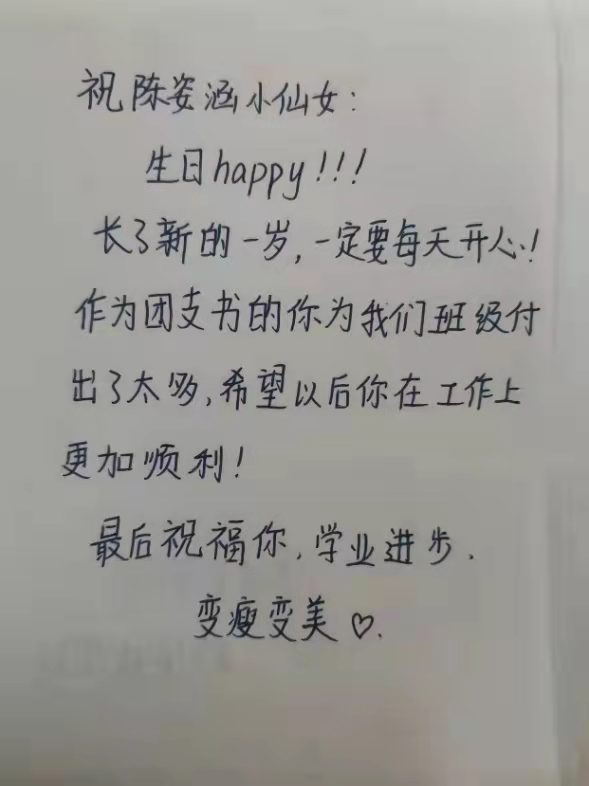 祝陈姿涵小仙女:
生日happy!!!
长了新的一岁,一定要每天开心!
作为团支书的你为我们班级付
出了太多,希望以后你在工作上
更加顺利!
最后祝福你,学业进步.
变瘦变美♡.